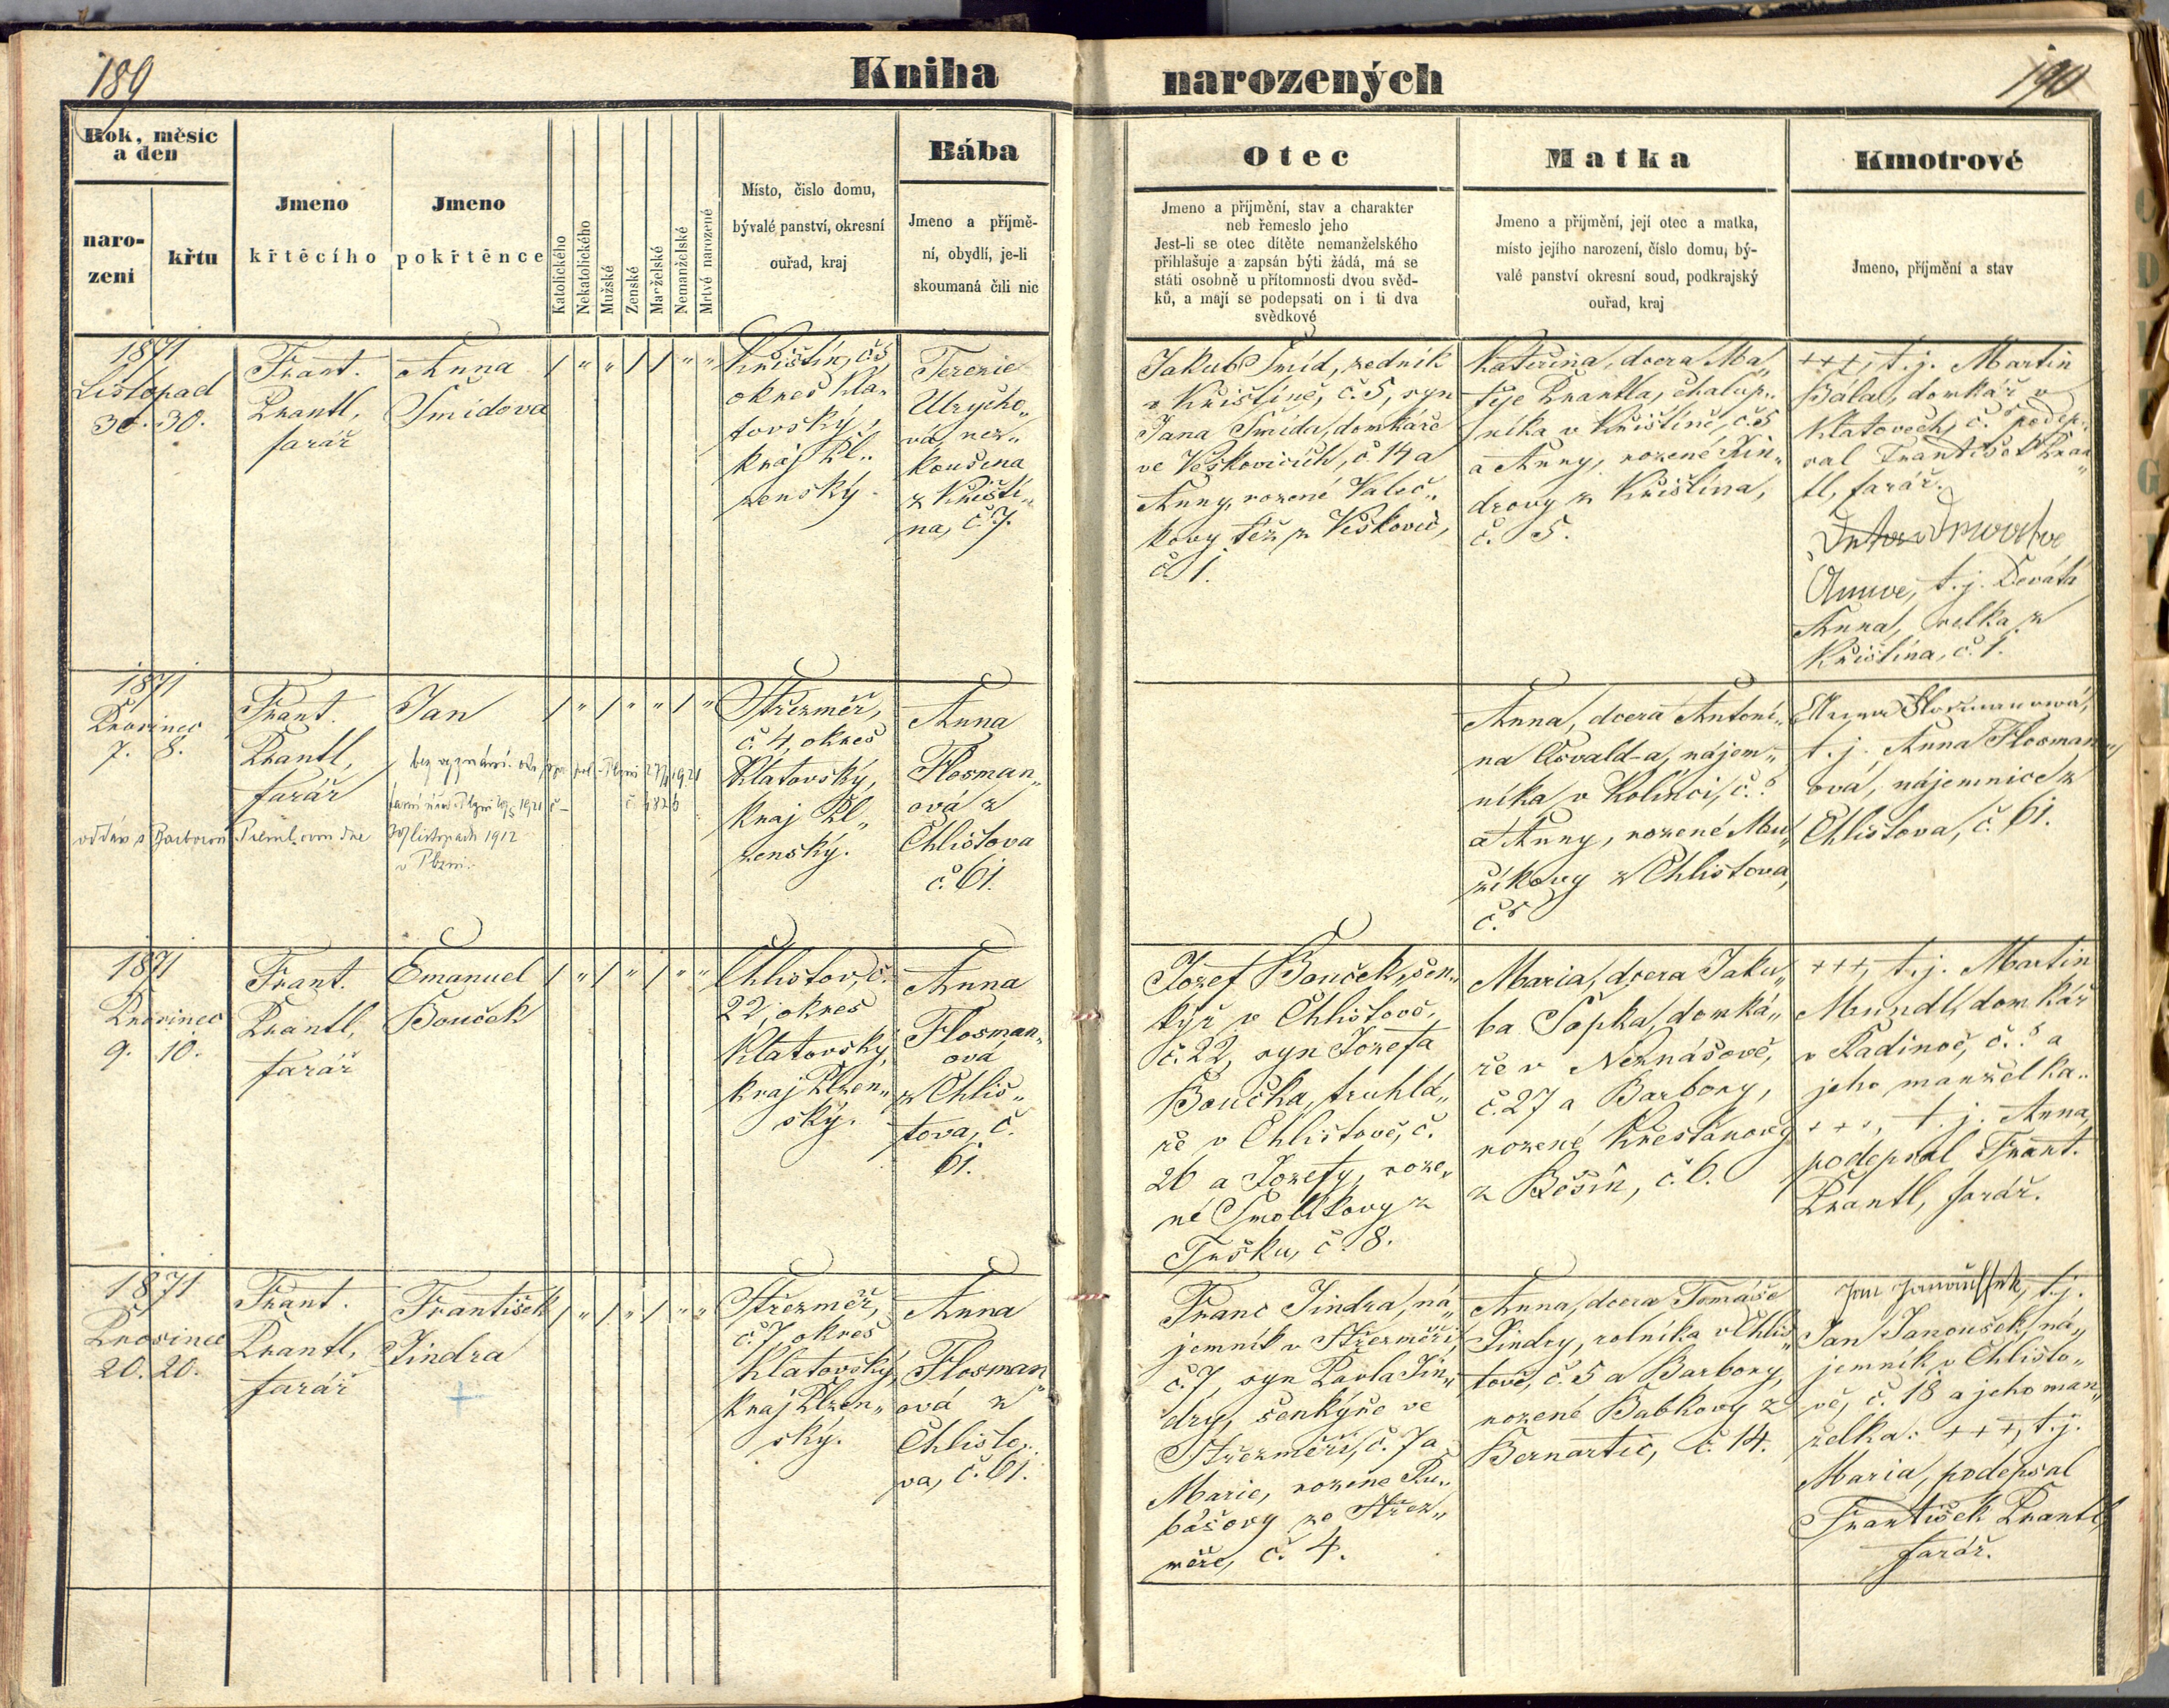 189
Kniha
narozených
190
Rok, měsíc
a den
naro-
zení
křtu
Jmeno
křtěcího
Jmeno
pokřtěnce
Katolického
Nekatolického
Mužské
Ženské
Manželské
Nemanželské
Mrtvé narozené
Místo, číslo domu,
bývalé panství, okresní
ouřad, kraj
Bába
Jmeno a příjmě-
ní, obydlí, je-li
skoumaná čili nic
Otec
Jmeno a příjmění, stav a charakter
neb řemeslo jeho
Jest-li se otec dítěte nemanželského
přihlašuje a zapsán býti žádá, má se
státi osobně u přítomnosti dvou svěd-
ků, a mají se podepsati on i ti dva
svědkové
Matka
Jmeno a příjmění, její otec a matka,
místo jejího narození, číslo domu, bý-
valé panství okresní soud, podkrajský
ouřad, kraj
Kmotrové
Jmeno, příjmění a stav
1871
Listopad
30. 30.
Frant.
Prantl,
farář
Anna
Šmídova
/ " " / / " "
Křištín, č5
okres Kla„
tovský,
kraj Pl„
zenský.
Terezie
Ulrycho„
vá, nez„
koušena
z Křiští„
na, č. 7.
Jakub Šmíd, zedník
v Křištíně, č. 5, syn
Jana Šmída, domkáře
ve Vískovicích, č. 14 a
Anny, rozené Valeč„
kovy též z Vískovic,
č. 1.
Kateřina, dcera Ma„
těje Prantla, chalup„
níka v Křištíně, č. 5
a Anny, rozené Jin„
drovy z Křištína,
č. 5.
+++, t. j. Martin
Bála, domkář v
Klatovech, č. podep„
sal František Pran„
tl, farář.
Anna, t. j. Devátá
Anna, z
Křištína, č. 1.
1871
Prosinec
7. 8.
Frant.
Prantl,
farář
Jan
/ " / " " / "
bez vyznání. 1921
1921 č
č. 1826
oddán s Barborou dne
listopadu 1912
v Plzni.
Střezměř,
č. 4, okres
Klatovský,
kraj Pl„
zenský.
Anna
Flosman„
ová z
Chlistova
č. 61.
Anna, dcera Antoní„
na Osvald-a, nájem„
níka v Kolinci, č. ?
a Anny, rozené Mou„
číkovy z Chlistova,
č. ?
Anna Flosmanová,
t. j. Anna Flosman„
ová, nájemnice z
Chlistova, č. 61.
1871
Prosinec
9. 10.
Frant.
Prantl,
farář
Emanuel
Bouček
/ " / " / " "
Chlistov, č.
22, okres
Klatovský,
kraj Plzen„
ský.
Anna
Flosman„
ová
z Chlis„
tova, č.
61.
Jozef Bouček, šen„
kýř v Chlistově,
č. 22, syn Jozefa
Boučka, truhlá„
ře v Chlistově, č.
26 a Jozefy, roze„
né Smolíkovy z
Tušku, č. 8.
Maria, dcera Jaku„
ba Sopka, domká„
ře v Neznášově,
č. 27 a Barbory,
rozené Křesťanovy
z Běšin, č. 6.
+++, t. j. Martin
Mundl, domkář
v Radinoč, č. ? a
jeho manželka„
+++, t. j. Anna,
podepsal Frant.
Prantl, farář.
1871
Prosinec
20. 20.
Frant.
Prantl,
farář
František
Jindra
+
/ " / " / " "
Střezměř,
č. 7, okres
Klatovský,
kraj Plzen„
ský.
Anna
Flosman„
ová z
Chlisto„
va, č. 61.
Franc Jindra, ná„
jemník v Střezměři,
č. 7, syn Pavla Jin„
dry, šenkýře ve
Střezměři, č. 7 a
Marie, rozené Ru„
bášovy ze Střez„
měře, č. 4.
Anna, dcera Tomáše
Jindry, rolníka v Chlis„
tově, č. 5 a Barbory,
rozené Babkovy z
Bernartic, č. 14.
Jan Janoušek, t. j.
Jan Janoušek, ná„
jemník v Chlisto„
vě, č. 18 a jeho man„
želka: +++, t. j.
Maria, podepsal
František Prantl,
farář.